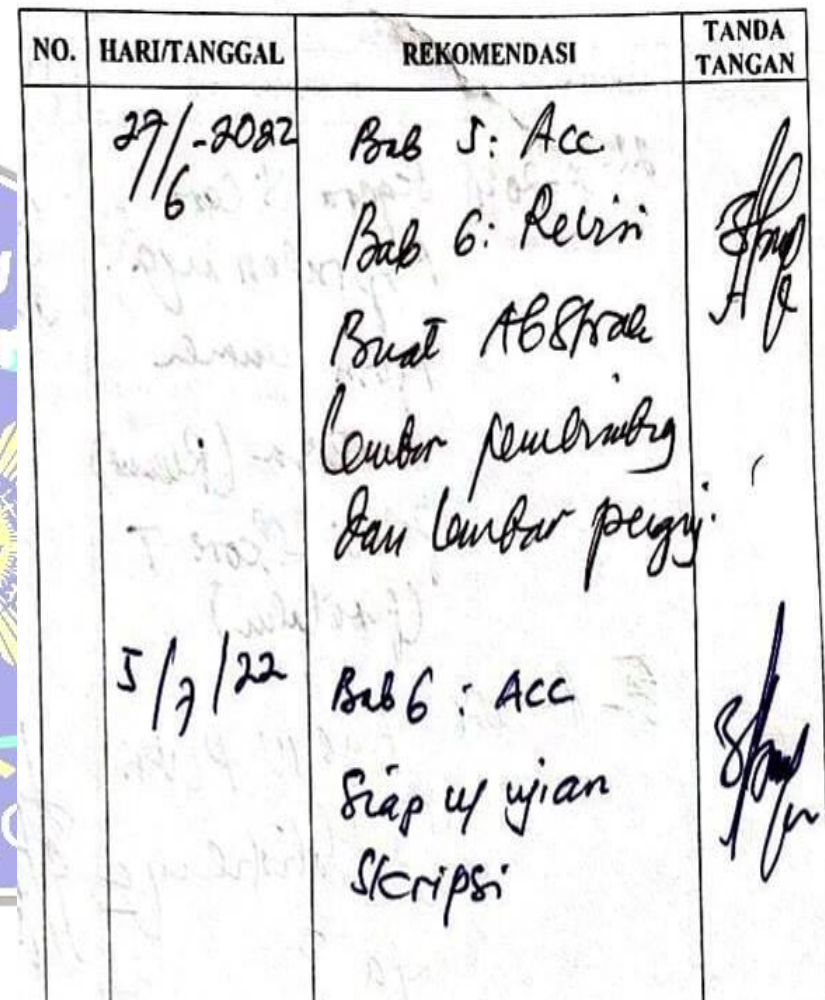 NO. HARI/TANGGAL REKOMENDASI TANDA TANGAN
27/6-2022 Bab 5: Acc
Bab 6: Revisi
Buat Abstrak
lembar pembimbing
dan lembar penguji.
5/7/22 Bab 6 : Acc
Siap u/ ujian
Skripsi